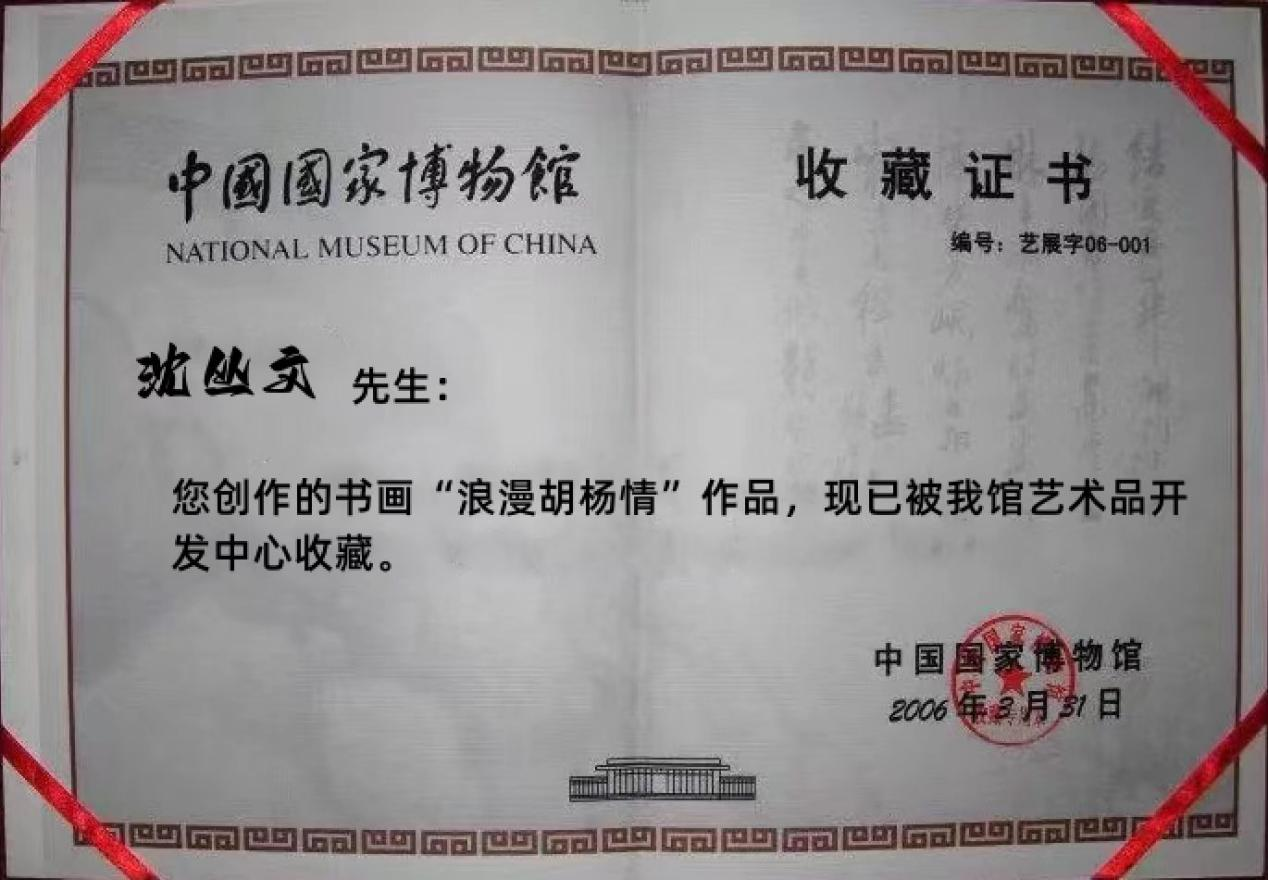 中國國家博物館
NATIONAL MUSEUM OF CHINA
收藏证书
编号：艺展字06-001
沈丛文 先生：
您创作的书画“浪漫胡杨情”作品，现已被我馆艺术品开
发中心收藏。
中国国家博物馆
2006年3月31日